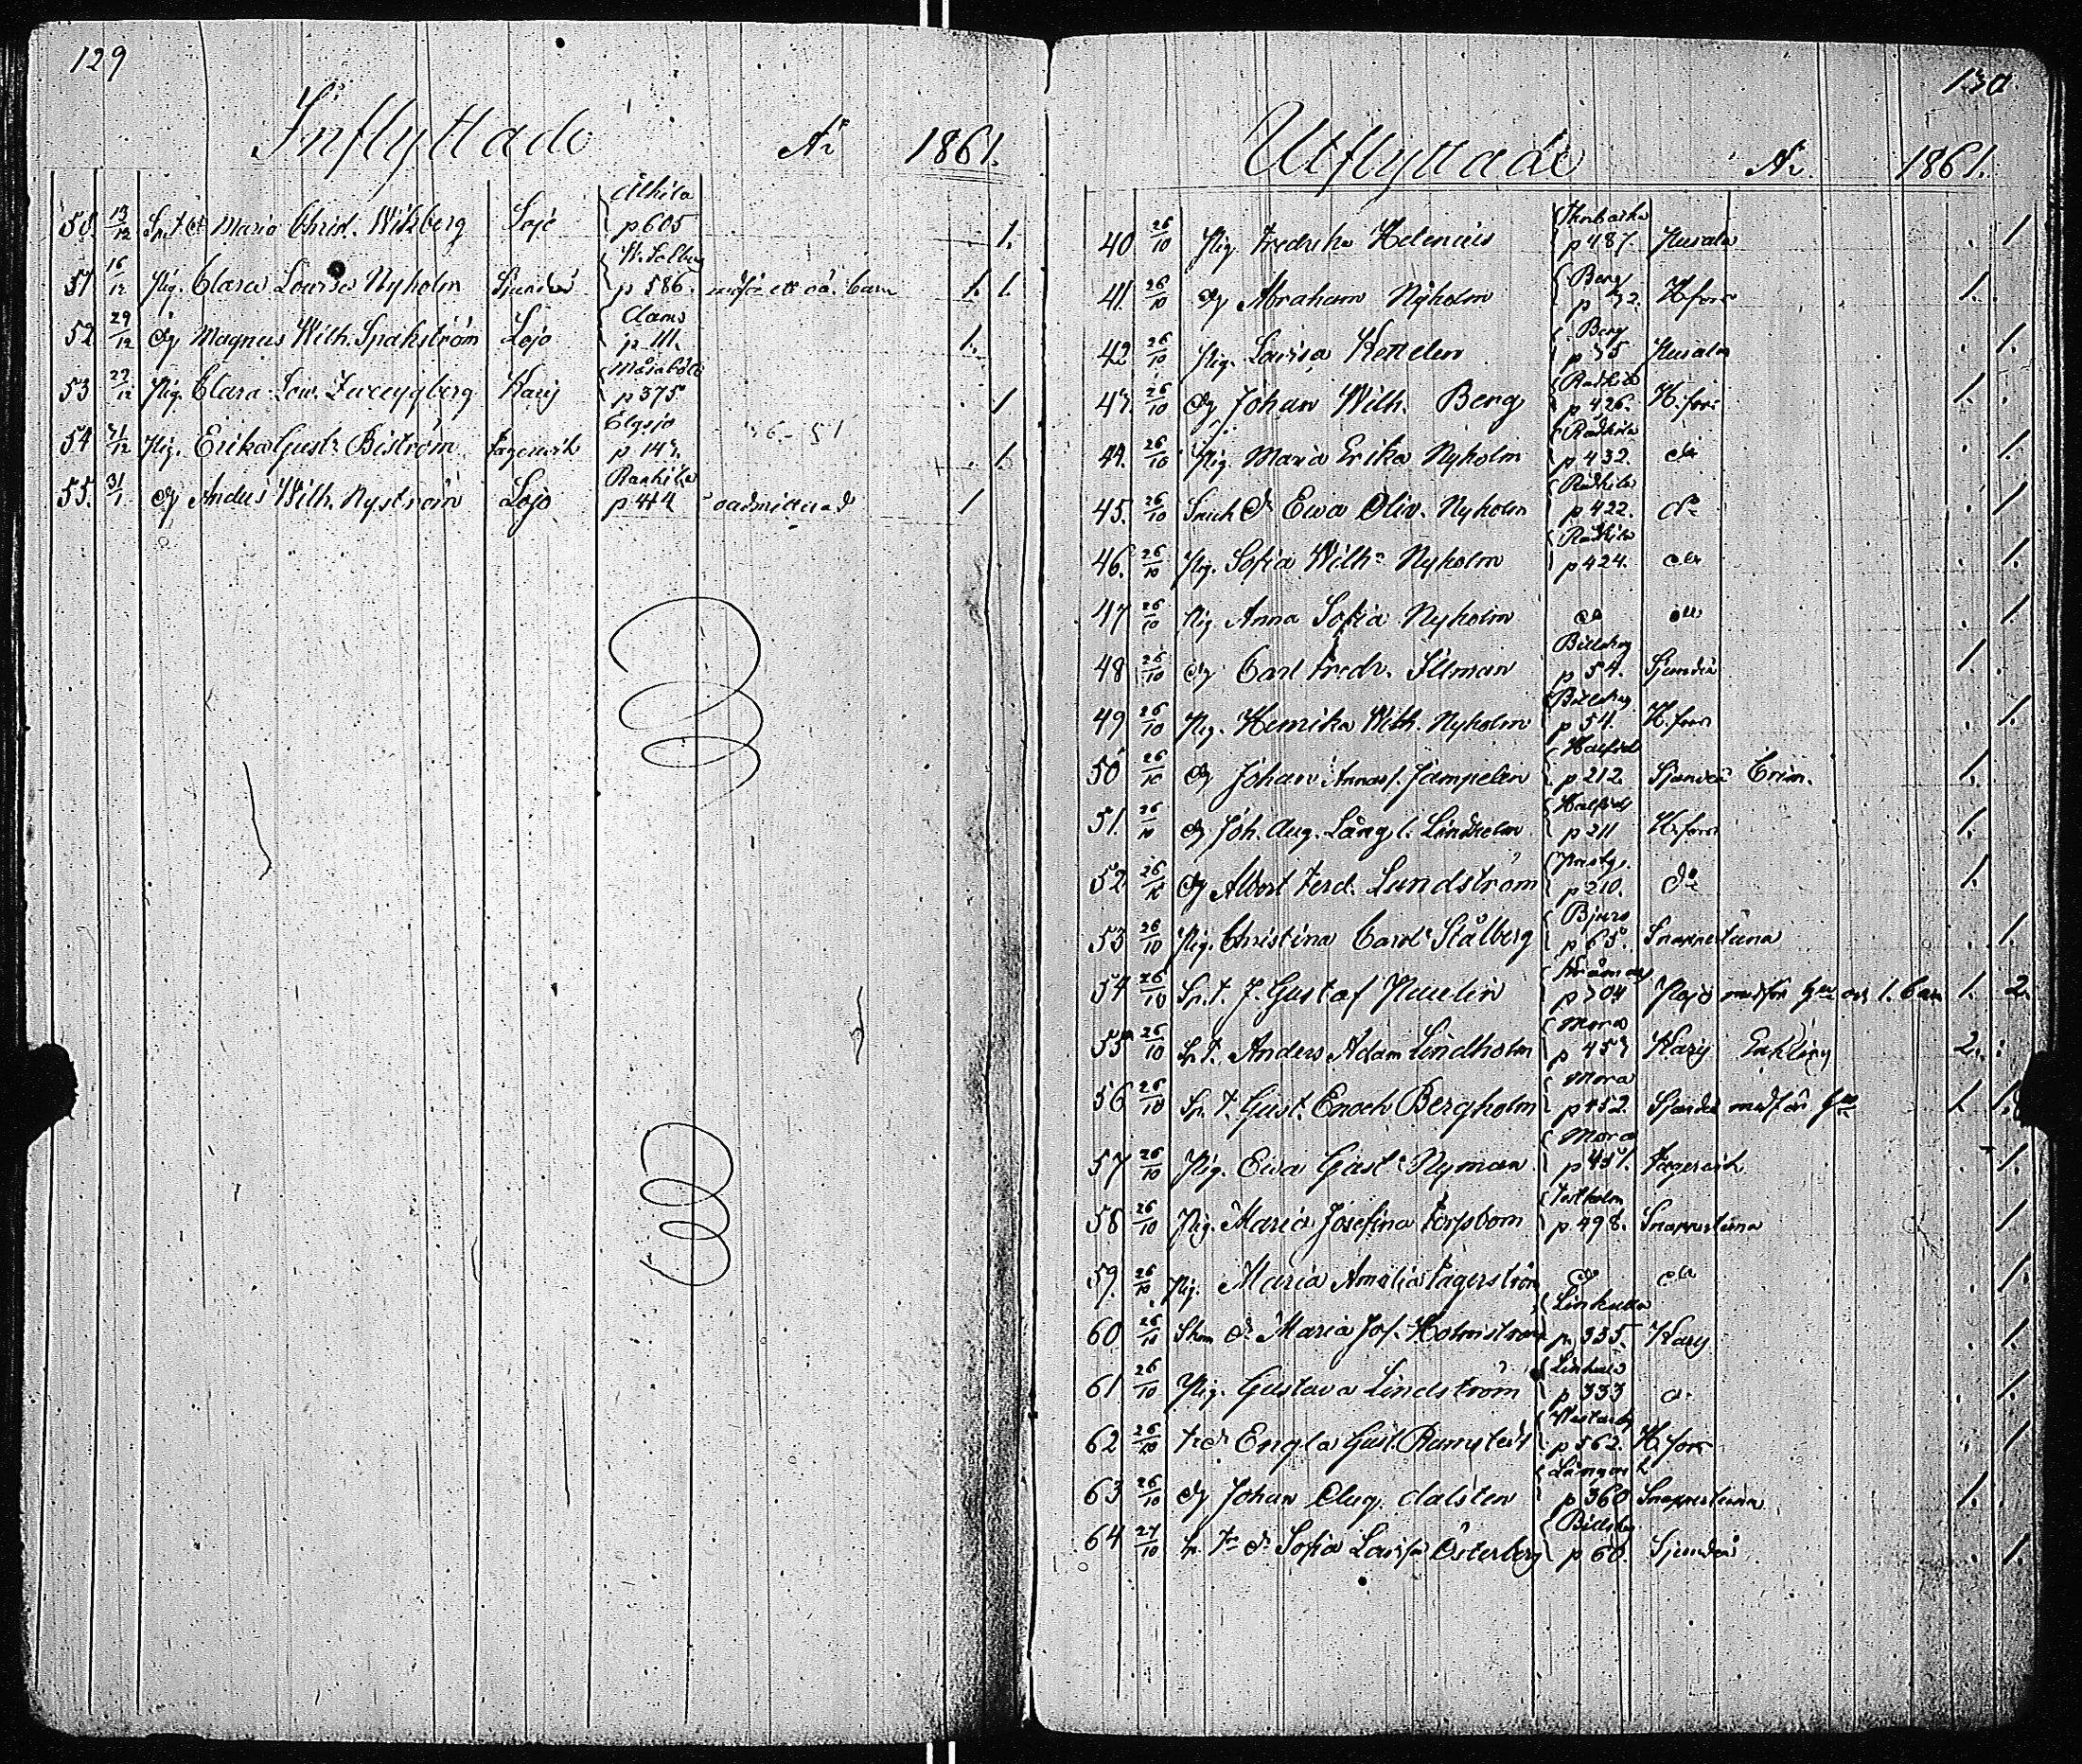 129
Inflyttade År 1861.
50. 13/12 Maria Christ. Wikberg Lojo p 605 1.
51 16/12 Pig. Clara Lovisa Nyholm Sjundeå p 586. medför ett oä. barn 1. 1.
52 29/12 Dg Magnus Wilh. Spakström Lojo p 111. 1.
53 29/12 Pig. Clara Lov. Karis p 375. 1
54 31/12 Pig. Erika Gust: Biström. Fagervik Elgsjö 1.
55. 31/1 Dg Anders Wilh. Nyström Lojo p 442 oadmitterad 1
130.
Utflyttade År. 1861.
40 26/10 Pig Fredrika Helenius p 487. Pusula 1
41. 26/10 Dg Abraham Nyholm Berg H.fors 1.
42 26/10 Pig. Lovisa Berg p 35 Pusula 1.
43. 26/10 Dg Johan Wilh. Berg Rådkila p 426. H.fors 1.
44. 26/10 Pig. Maria Erika Nyholm Rådkila p 432. do 1
45. 26/10 Ewa Oliv. Nyholm Rådkila p 422. do 1
46. 26/10 Pig. Sofia Wilh: Nyholm Rådkila p 424. do 1.
47 26/10 Pig Anna Sofia Nyholm do do 1.
48 26/10 Dg Carl Fredr. Illman Billskog p 54. Sjundeå 1.
49 26/10 Pig. Henrika Wilh. Nyholm Billskog p 54. H.fors 1.
50 26/10 Dg Johan Jampelin p 212. Sjundeå 1.
51. 26/10 Dg Joh. Aug. Lång l. Lindholm p 211 H.fors 1.
52 26/10 Dg Albert Ferd. Lundström Prästg. p 210. do 1.
53 26/10 Pig. Christina Carol: Stålberg Bjers p 65. Snappertuna 1.
54 26/10 Sp. T. J. Gustaf p 704 medför och 1. barn 1. 2.
55 26/10 Sp T. Anders Adam Lindholm Mora p 457 Karis Enkling 2.
56 26/10 Sp. T. Gust. Enoch Bergholm Mora p 452 Sjundeå medför 1. 1.
57 26/10 Pig. Ewa Gust: Nyman Mora p 451. Fagervik 1.
58 26/10 Pig. Maria Josefina Forsström p 498. Snappertuna 1
59. 26/10 Pig. Maria Amalia Fagerström do do 1.
60 26/10 Maria Jos. Holmström Linkulla p. 335. Karis 1.
61 26/10 Pig. Gustava Lindström Linkulla p 333 do 1.
62 26/10 Engla Gust. Ramstedt p 562. H.fors 1
63 26/10 Dg Johan Aug. Dalsten Långvik p 360 Snappertuna 1.
64 27/10 Sofia Lovisa Österberg p 60. Sjundeå 1.